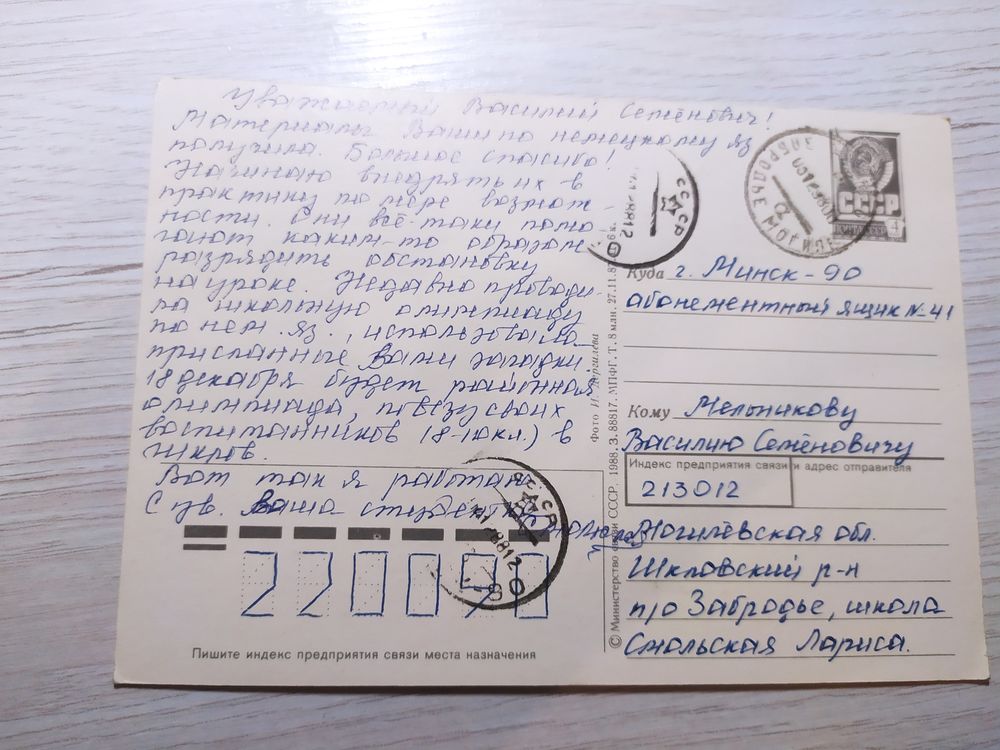 Уважаемый Василий Семёнович!
Материалы Ваши по немецкому яз
получила. Большое спасибо!
Начинаю внедрять их в
практику по мере возмож-
ности. Они всё-таки помо-
гают каким-то образом
разрядить обстановку
на уроке. Недавно проводи-
ла школьную олимпиаду
по нем. яз., использовала
присланные Вами загадки.
18 декабря будет районная
олимпиада, повезу своих
воспитанников (8-10 кл.) в
Шклов.
Вот так я работаю.
С ув. Ваша студентка
Пишите индекс предприятия связи места назначения
220090
© Министерство связи СССР. 1988. З. 88817. МПФГ. Т. 8 млн. 27.11.87.
Фото И. Дергилева
СССР
4
Куда г. Минск-90
абонементный ящик № 41
Кому Мельникову
Василию Семёновичу
Индекс предприятия связи и адрес отправителя
213012
Могилёвская обл.
Шкловский р-н
п/о Забродье, школа
Смольская Лариса.